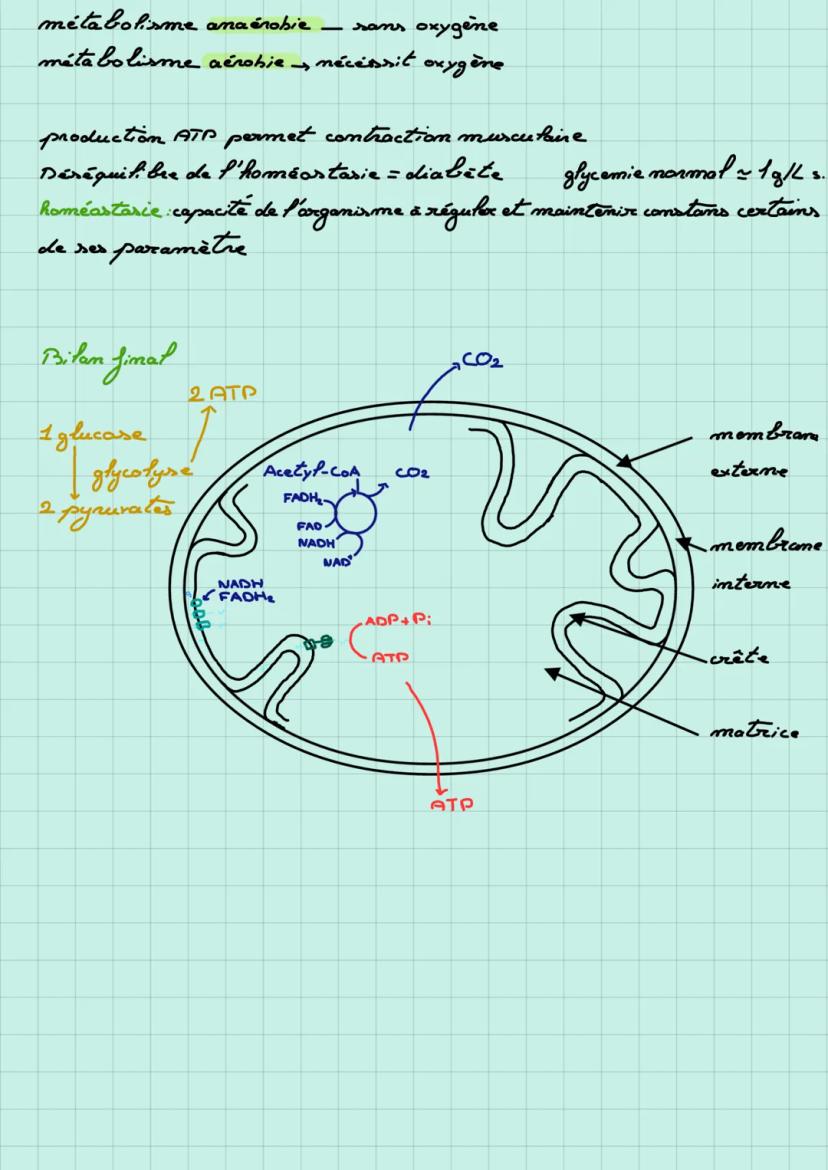 métabolisme anaérobie — sans oxygène
métabolisme aérobie → nécessit oxygène
production ATP permet contraction musculaire
Déséquilibre de l'homéostasie = diabète glycemie normal ≃ 1g/L s.
homéostasie : capacité de l'organisme à réguler et maintenir constans certains
de ses paramètre
Bilan final
CO2
2 ATP
1 glucase
glycolyse
2 pyruvates
Acetyl-CoA
CO2
FADH2
FAD
NADH
NAD+
NADH
FADH2
ADP+Pi
ATP
ATP
membrane
externe
membrane
interne
crête
matrice